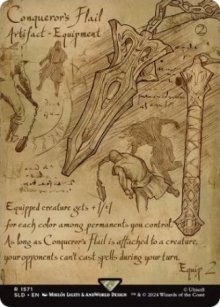 Conqueror's Flail
Artifact - Equipment
2
Equipped creature gets +1/+1
for each color among permanents you control.
As long as Conqueror's Flail is attached to a creature,
your opponents can't cast spells during your turn.
Equip 2
R 1571
SLD • EN
™ & © 2024 Wizards of the Coast
© Ubisoft